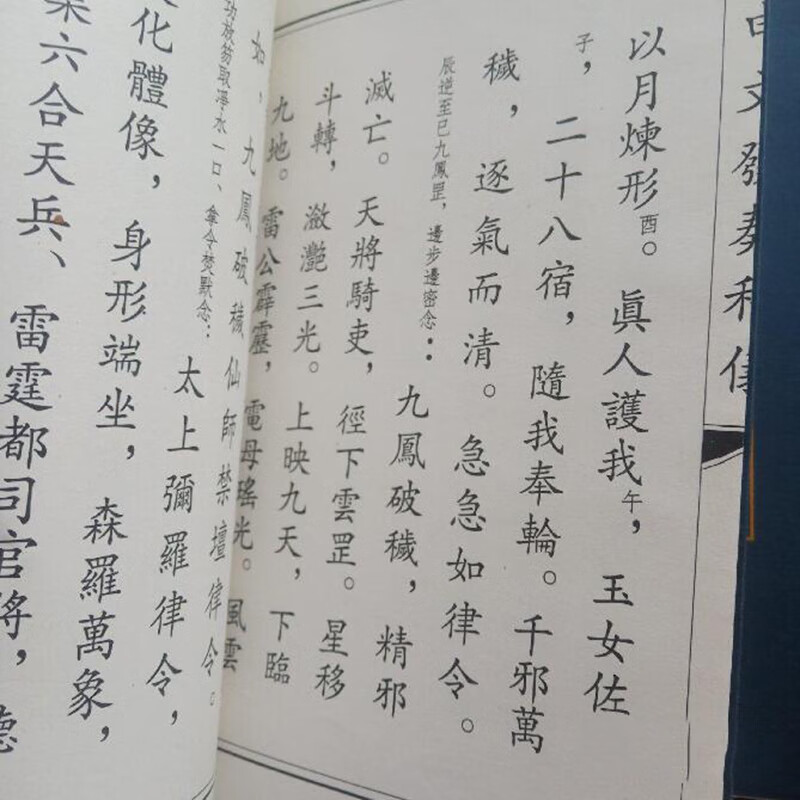 文發奏科儀
以月煉形酉。眞人護我午,玉女佐
子,二十八宿,隨我奉輪。千邪萬
穢,逐氣而清。急急如律令。
辰逆至巳九鳳罡,邊步邊密念:九鳳破穢,精邪
滅亡。天將騎吏,徑下雲罡。星移
斗轉,瀲灩三光。上映九天,下臨
九地。雷公霹靂,電母瑤光。風雲
如,九鳳破穢仙師禁壇律令。
功放笏取淨水一口、拿令焚默念:太上彌羅律令,
化體像,身形端坐,森羅萬象,
六合天兵、雷霆都司官將,